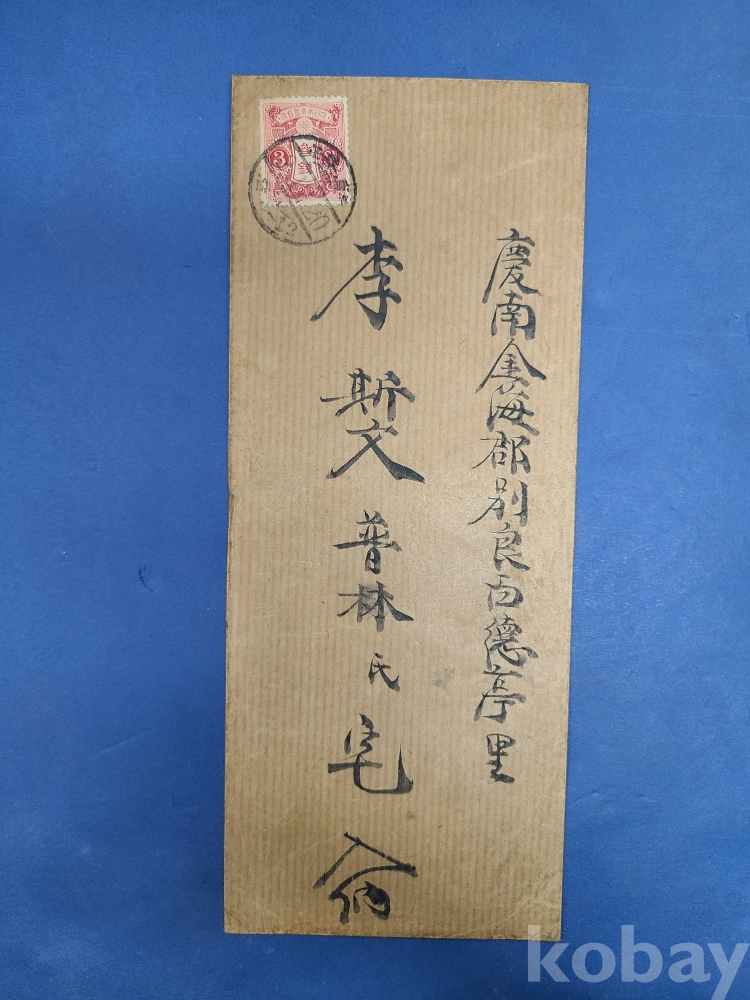 慶南金海郡別良面德亭里
李斯文普林氏宅入納
3
20
kobay